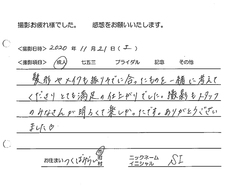 撮影お疲れ様でした。 感想をお願いいたします。
<撮影日時> 2020年 11月 21日 (土)
<撮影項目> 成人 七五三 ブライダル 記念 その他
髪型やメイクも振りそでに合ったものを一緒に考えて
くださりとても満足の仕上がりでした。撮影もスタッフ
のみなさんが明るくて楽しかったです。ありがとうござい
ました
お住まい つくばみらい 市 ニックネーム イニシャル S.I